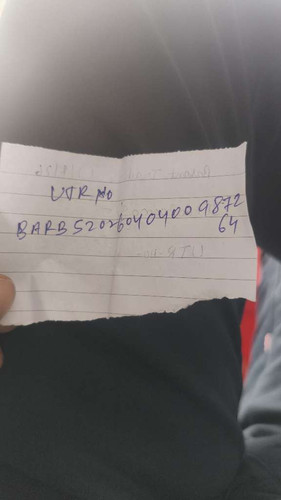 UTR No
BARB520260404009872
64